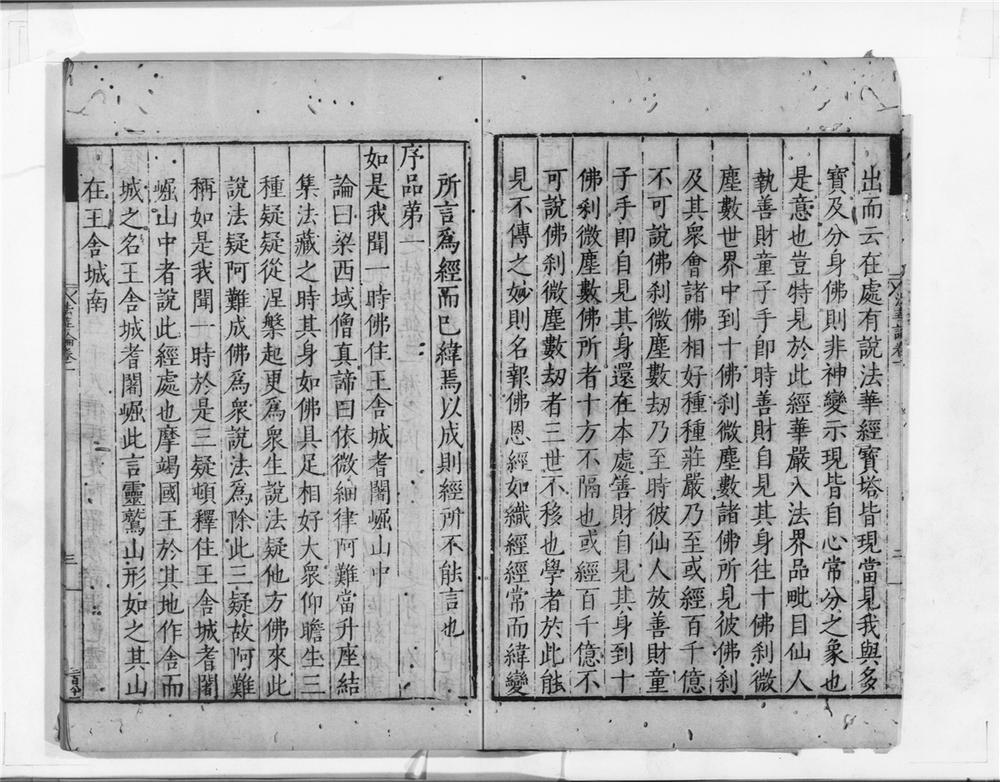 出而云在處有說法華經寶塔皆現當見我與多
寶及分身佛則非神變示現皆自心常分之象也
是意也豈特見於此經華嚴入法界品毗目仙人
執善財童子手即時善財自見其身往十佛刹微
塵數世界中到十佛刹微塵數諸佛所見彼佛刹
及其衆會諸佛相好種種莊嚴乃至或經百千億
不可說佛刹微塵數劫乃至時彼仙人放善財童
子手即自見其身還在本處善財自見其身到十
佛刹微塵數佛所者十方不隔也或經百千億不
可說佛刹微塵數劫者三世不移也學者於此能
見不傳之妙則名報佛恩經如織經經常而緯變
法華論卷一
二
所言爲經而已緯焉以成則經所不能言也
序品第一
如是我聞一時佛住王舍城耆闍崛山中
論曰梁西域僧真諦曰依微細律阿難當升座結
集法藏之時其身如佛具足相好大衆仰瞻生三
種疑疑從涅槃起更爲衆生說法疑他方佛來此
說法疑阿難成佛爲衆說法爲除此三疑故阿難
稱如是我聞一時於是三疑頓釋住王舍城耆闍
崛山中者說此經處也摩竭國王於其地作舍而
城之名王舍城耆闍崛此言靈鷲山形如之其山
在王舍城南
法華論卷一
三